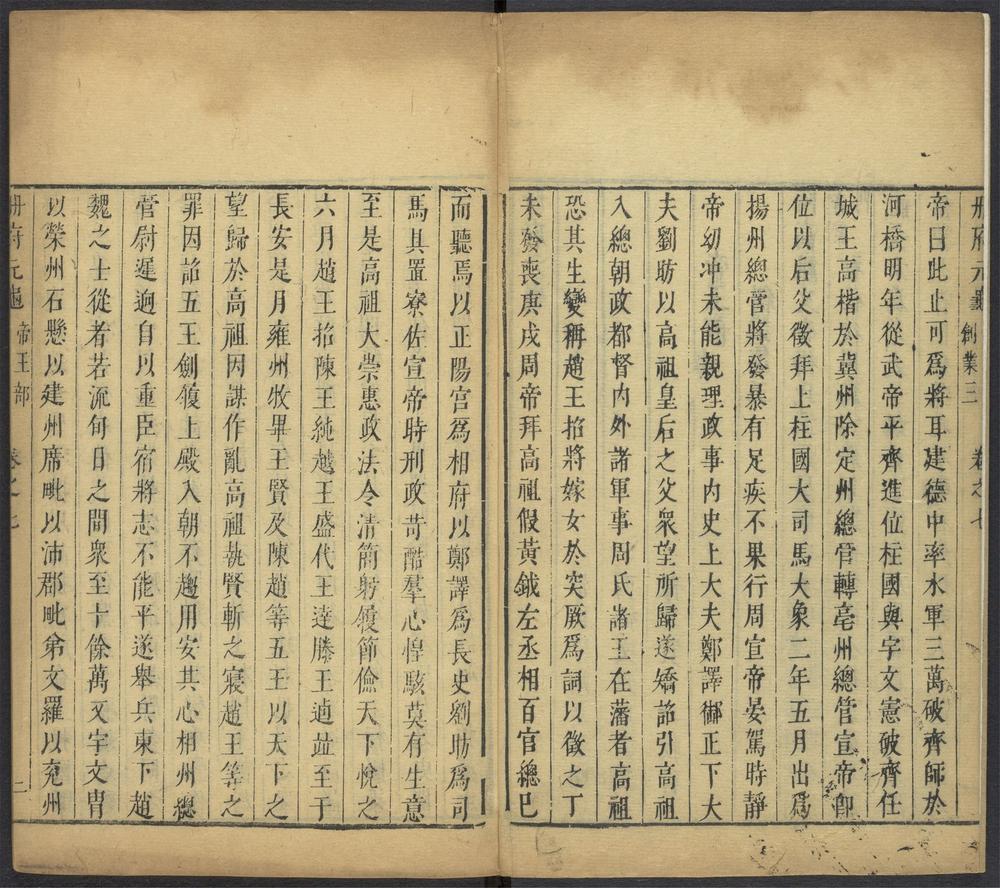 冊府元龜 創業三 卷之七
帝曰此止可爲將耳建德中率水軍三萬破齊師於
河橋明年從武帝平齊進位柱國與宇文憲破齊任
城王高楷於冀州除定州總管轉亳州總管宣帝卽
位以后父徵拜上柱國大司馬大象二年五月出爲
揚州總管將發暴有足疾不果行周宣帝晏駕時靜
帝幼冲未能親理政事内史上大夫鄭譯御正下大
夫劉昉以高祖皇后之父衆望所歸遂矯詔引高祖
入總朝政都督内外諸軍事周氏諸王在藩者高祖
恐其生變稱趙王招將嫁女於突厥爲詞以徵之丁
未發喪庚戌周帝拜高祖假黃鉞左丞相百官總已
而聽焉以正陽宮爲相府以鄭譯爲長史劉昉爲司
馬具置寮佐宣帝時刑政苛酷羣心惶駭莫有生意
至是高祖大崇惠政法令清簡躬履節儉天下悅之
六月趙王招陳王純越王盛代王達滕王逌並至于
長安是月雍州牧畢王賢及陳趙等五王以天下之
望歸於高祖因謀作亂高祖執賢斬之寢趙王等之
罪因詔五王劍履上殿入朝不趨用安其心相州總
管尉遲逈自以重臣宿將志不能平遂舉兵東下趙
魏之士從者若流旬日之間衆至十餘萬又宇文胄
以榮州石愻以建州席毗以沛郡毗弟文羅以兗州
冊府元龜 帝王部 卷之七 二